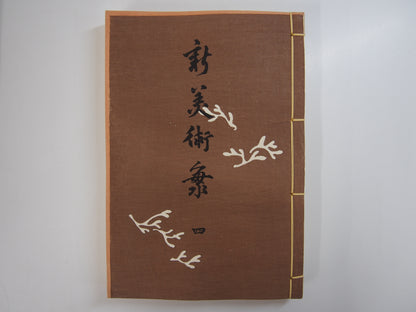 新美術彙 四